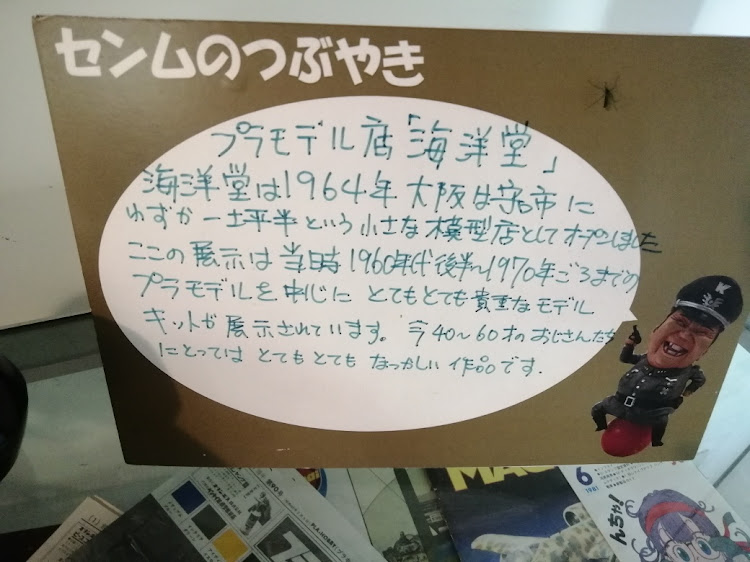 センムのつぶやき
プラモデル店「海洋堂」
海洋堂は1964年 大阪は守口市に
わずか一土平半という小さな模型店としてオープンしました
ここの展示は当時1960年代後半〜1970年ごろまでの
プラモデルを中心に とてもとても貴重なモデル
キットが展示されています。今40〜60才のおじさんたち
にとっては とてもとても なつかしい作品です.
MA
6
1981
んちゃ!